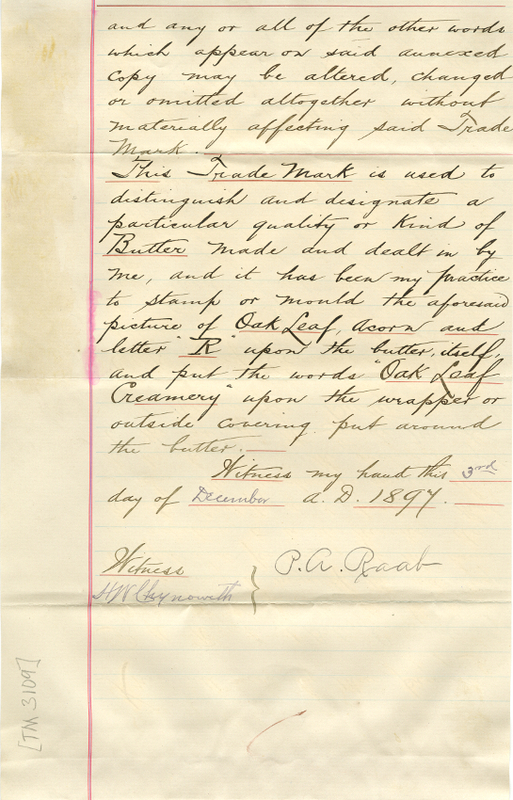 and any or all of the other words
which appear on said annexed
copy may be altered, changed
or omitted altogether without
materially affecting said Trade
Mark.
This Trade Mark is used to
distinguish and designate a
particular quality or kind of
Butter made and dealt in by
me, and it has been my practice
to stamp or mould the aforesaid
picture of Oak Leaf, Acorn and
letter "R" upon the butter, itself,
and put the words "Oak Leaf
Creamery" upon the wrapper or
outside covering put around
the butter.
Witness my hand this 3rd
day of December A.D. 1897.
Witness
P. A. Raab
H W Chynoweth
[TM 3109]